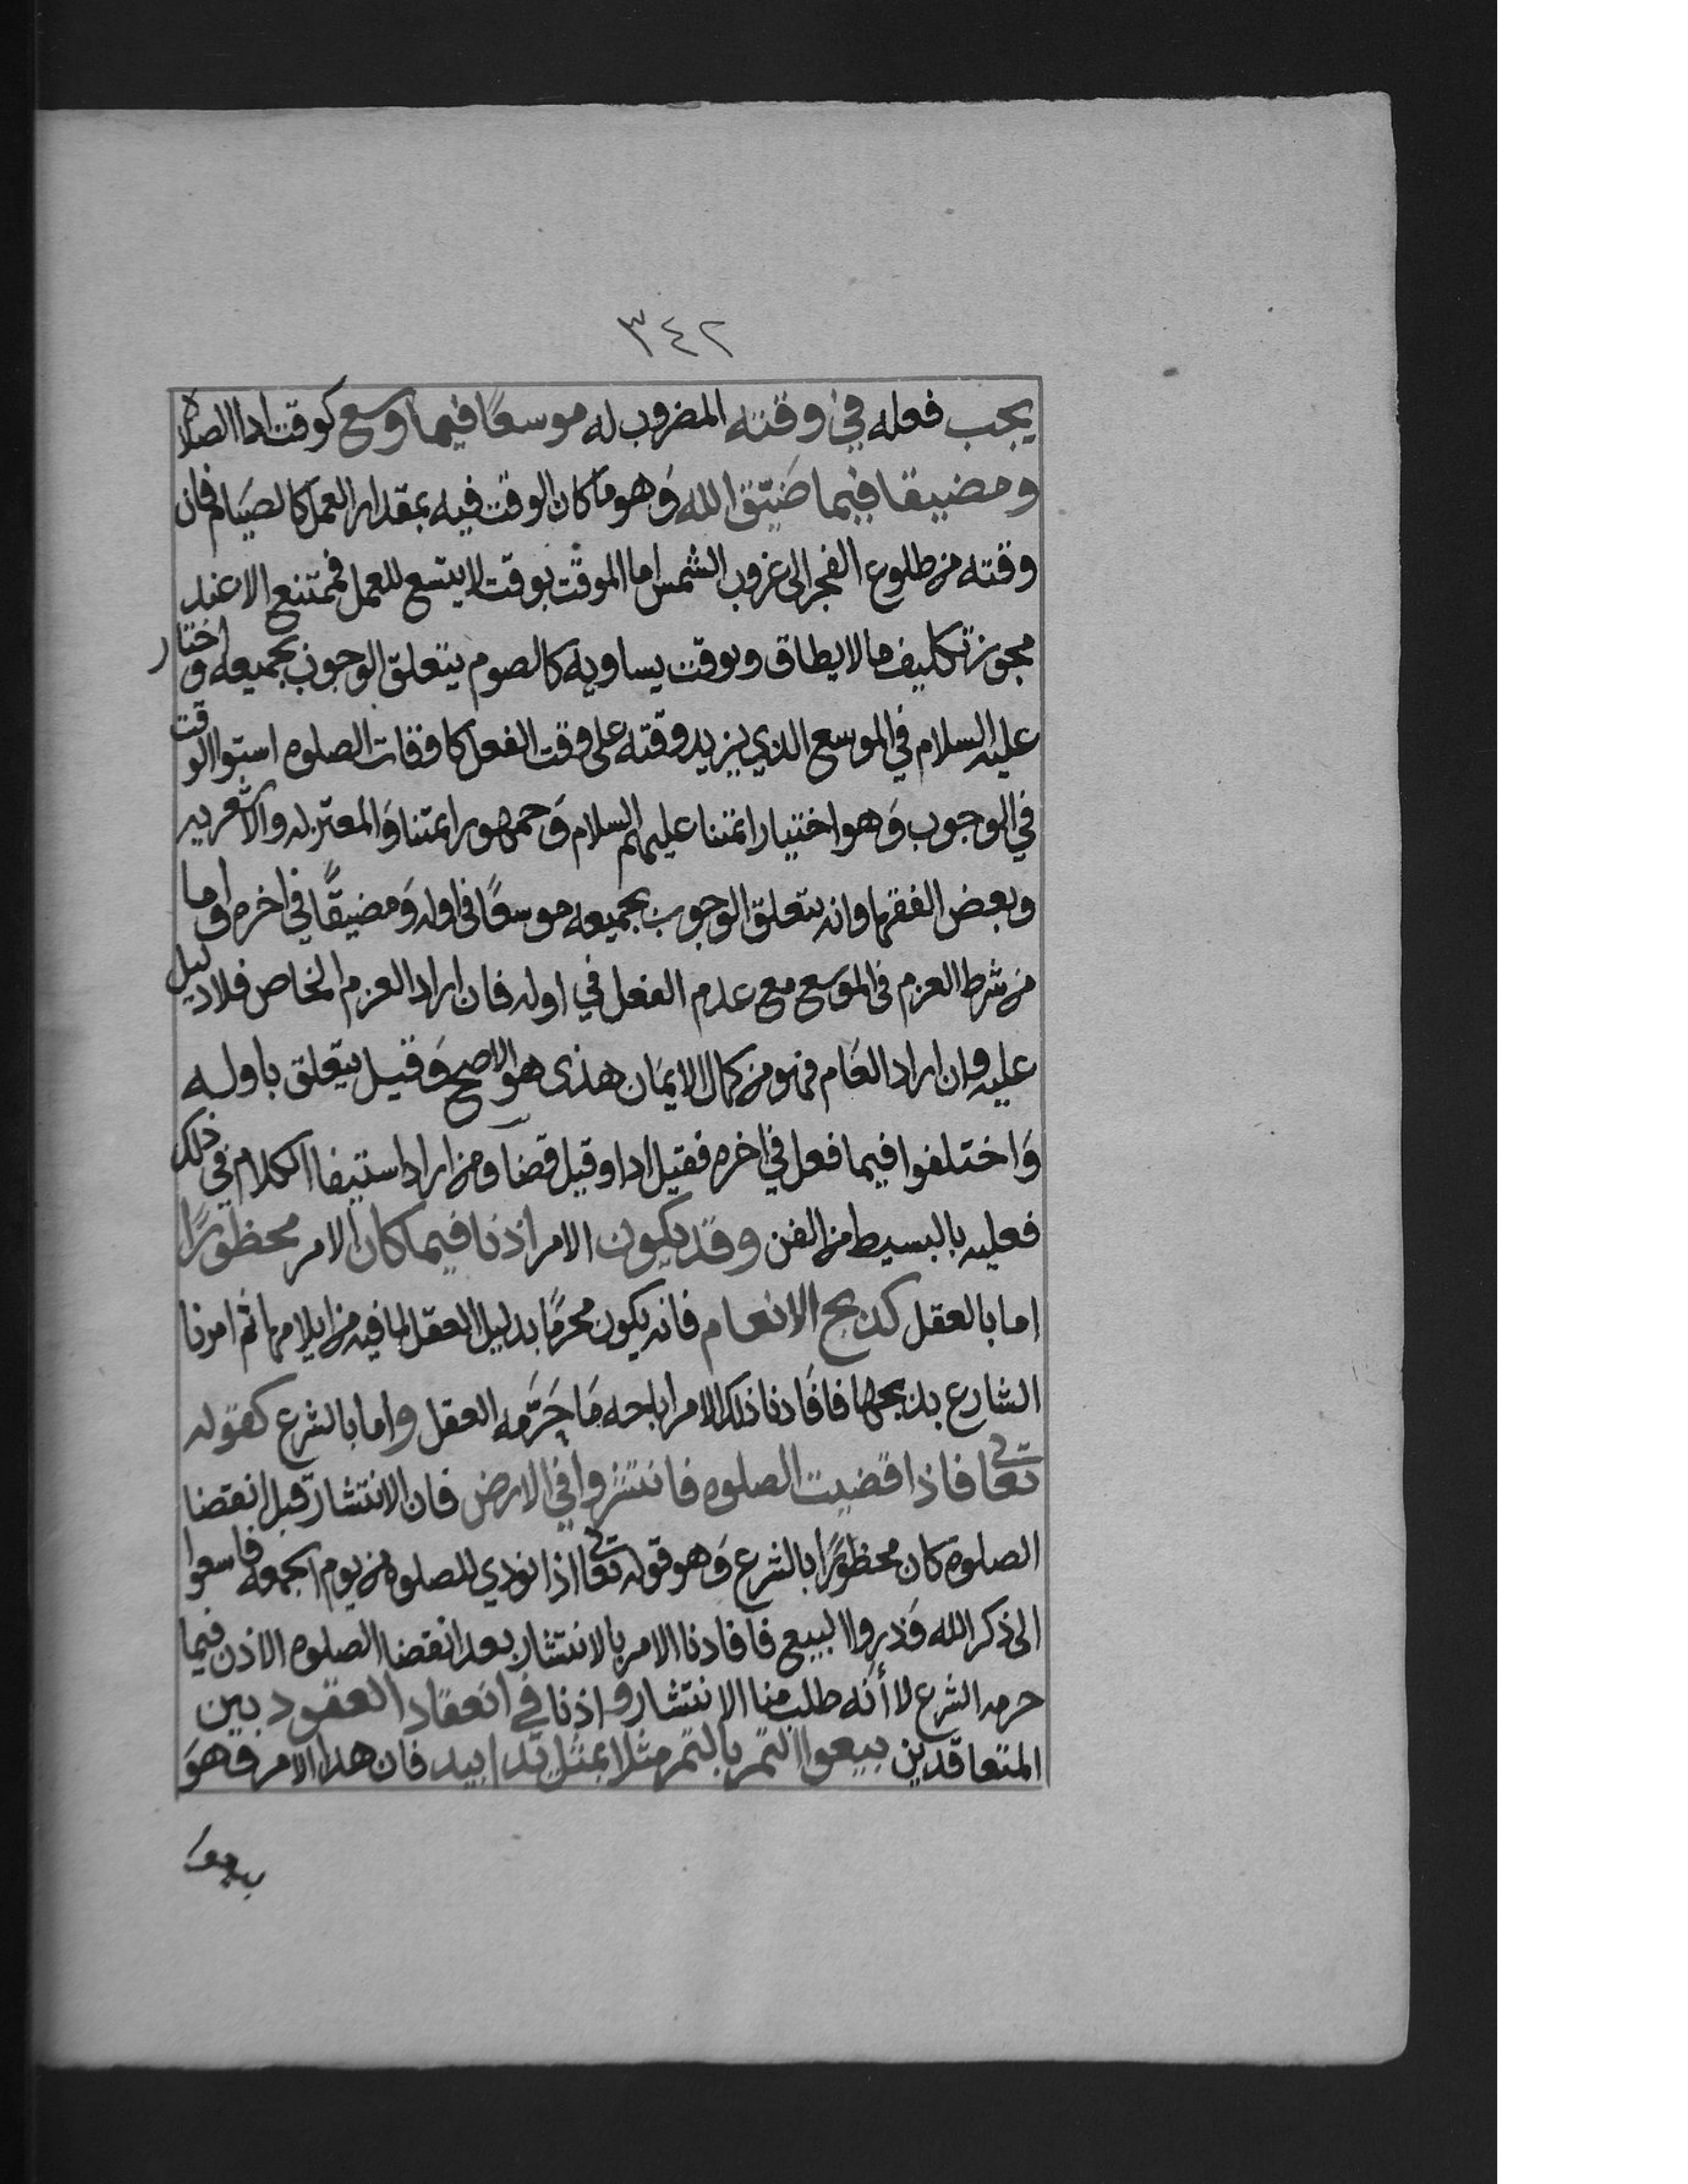 ٣٤٢
يجب فعله في وقته المضروب له موسعًا فيما وسع كوقت ادا الصلاه
ومضيقا فيما ضَيّق الله وَهو ما كان الوقت فيه بمقدار العمل كالصيَام فان
وقته من طلوع الفجر الى غروب الشمس اما الموقت بوقت لا يتسع للعمل فممتنع الا عند
مجوز تكليف ما لا يطاق وبوقت يساويه كالصوم يتعلق الوجوب بجميعه واختار
عليه السلام في الموسع الذي يزيد وقته على وقت الفعل كاوقات الصلوه استوا الوقت
في الوجوب وَهو اختيار ائمتنا عليهم السلام وَجمهور ائمتنا وَالمعتزله والاشعريه
وبعض الفقها وانه يتعلق الوجوب بجميعه موسعًا في اوله وَمضيقًا في اخره واما
من شرط العزم في الموسع مع عدم الفعل في اوله فان اراد العزم الخاص فلا دليل
عليه وان اراد العَام فهو من كمال الايمَان هذى هو الاصح وَقيل يتعلق باوله
وَاختلفوا فيما فعل في اخره فقيل ادا وقيل قضا ومن اراد استيفا الكلام في ذلك
فعليه بالبسيط من الفن وقد يكون الامر اذنا فيما كان الامر محظورًا
اما بالعقل كذبح الانعام فانه يكون محرمًا بدليل العقل لما فيه من ايلامها ثم امرنا
الشارع بذبحها فافَادنا ذلك الامر اباحه مَا حَرَّمه العقل واما بالشرع كقوله
تعا فاذا قضيت الصلوه فانتشروا في الارض فان الانتشار قبل انقضا
الصلوة كان محظورًا بالشرع وَهو قوله تعا اذا نودي للصلوه من يوم الجمعه فاسعوا
الى ذكر الله وَذروا البيع فافادنا الامر بالانتشار بعد انقضا الصلوه الاذن فيما
حرمه الشرع لا أنه طلب منا الانتشار واذنا في انعقاد العقود بين
المتعاقدين بيعوا التمر بالتمر مثلا بمثل يدا بيد فان هذا الامر وهوَ